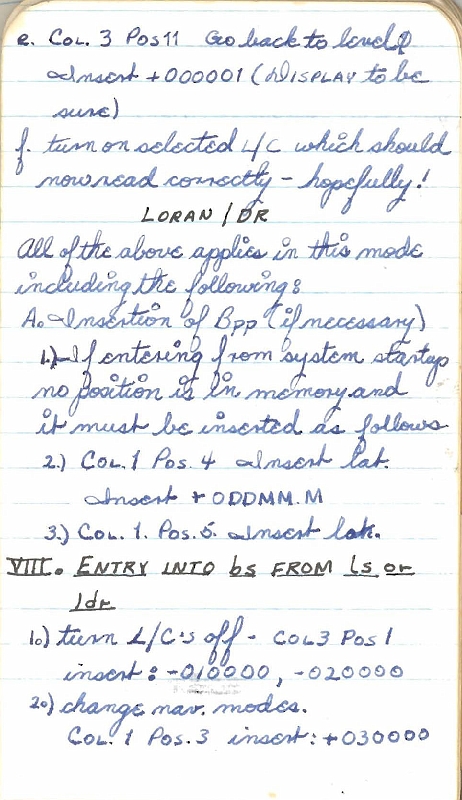 e. COL. 3 POS 11 Go back to level φ
Insert +000001 (DISPLAY to be
sure)
f. turn on selected L/C which should
now read correctly - hopefully!
LORAN / DR
All of the above applies in this mode
including the following:
A. Insertion of Bpp (if necessary)
1.) If entering from system startup
no position is in memory and
it must be inserted as follows
2.) COL. 1 Pos. 4 Insert lat.
Insert + ODDMM.M
3.) COL. 1. Pos. 5. Insert lok.
VIII. ENTRY INTO bs FROM ls or
ldr
1.) turn L/C's off - COL 3 Pos 1
insert: -010000, -020000
2.) change nav. modes.
COL. 1 Pos. 3 insert: +030000